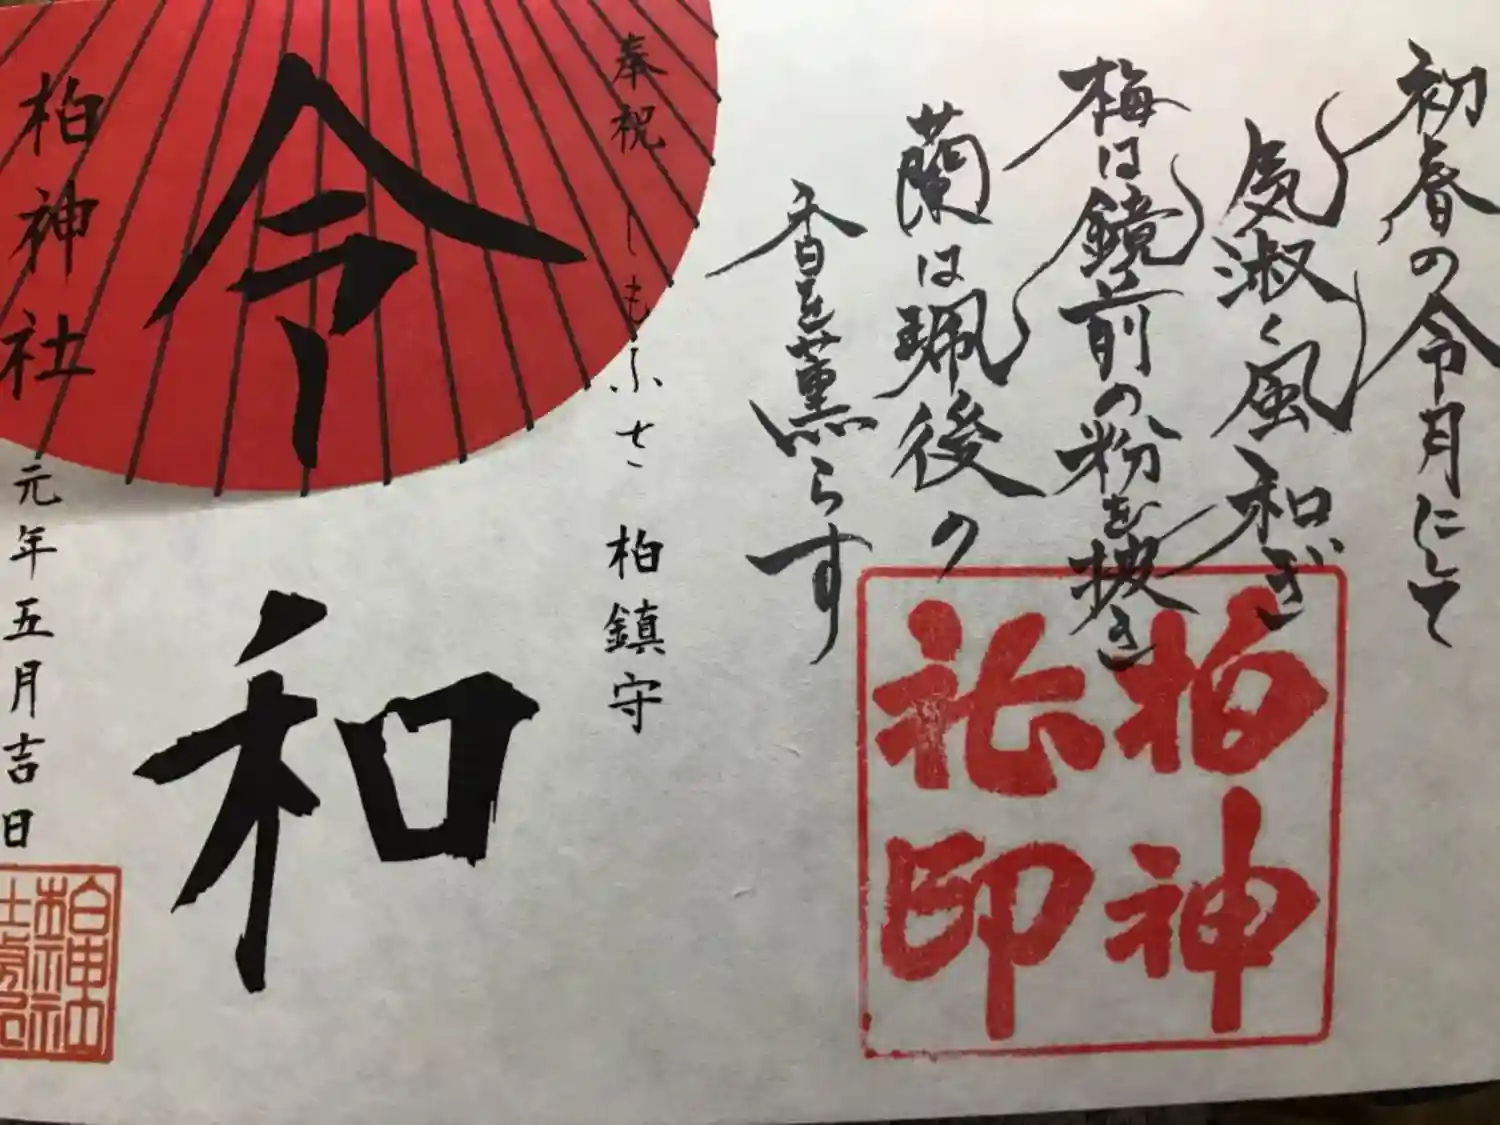 初春の令月にして
気淑く風和ぎ
梅は鏡前の粉を披き
蘭は珮後の
香を薫らす
柏神社印
奉祝 しもふさ 柏鎮守
令和
柏神社
元年五月吉日